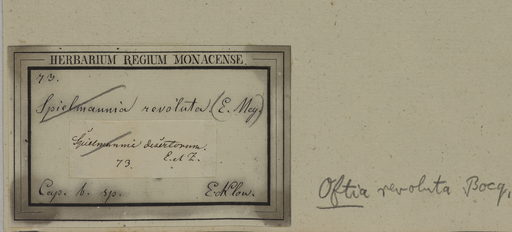 HERBARIUM REGIUM MONACENSE
73.
Spielmannia revoluta (E. Mey.)
Spielmannia desertorum.
73 E. et Z.
Cap. b. sp. Ecklon.
Oftia revoluta Bocq.